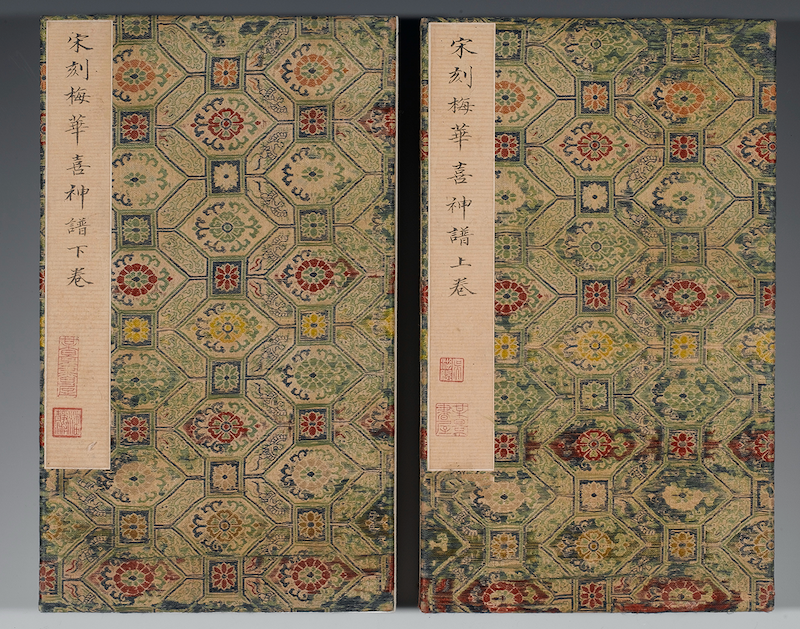 宋刻梅華喜神譜上卷
宋刻梅華喜神譜下卷